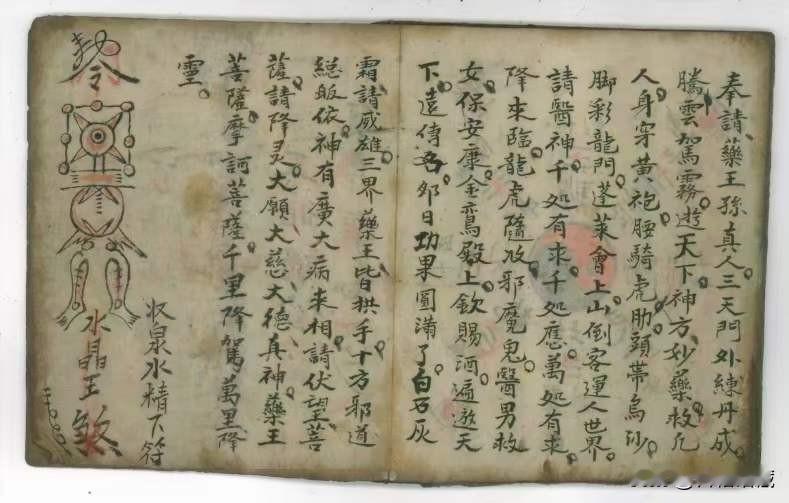 奉請藥王孫真人三天門外練丹成
騰雲駕霧遊天下神方妙藥救凡
人身穿黃袍腰騎虎肋頭帶烏沙
脚彩龍門蓬萊會上山倒客運人世界
請醫神千処有求千処應萬処有求
降來臨龍虎隨收邪魔鬼醫男救
女保安康金鸞殿上欽賜酒遍遊天
下遠傳名夕日功果圓滿了白石灰
霜請威雄三界藥王皆拱手十方邪道
総皈依神有廣大病來相請伏望菩
薩請降灵大願大慈大德真神藥王
菩薩摩訶菩薩千里降駕萬里降
霊
収泉水精下符
勅令
水晶王
煞